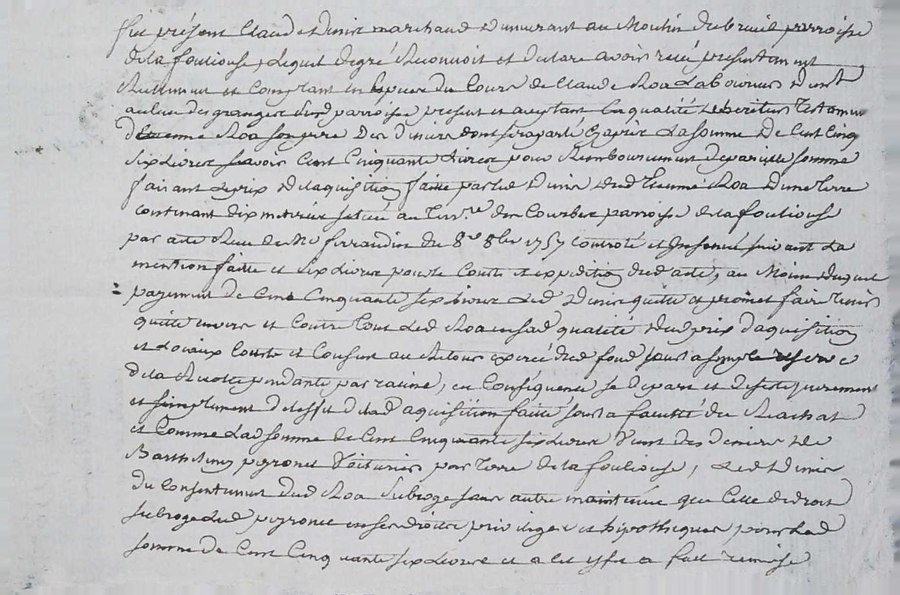 fut présent Claude Denis marchand demeurant au Moulin du breuil parroisse
de la fouliouse, lequel de gré Reconnoit et declare avoir recu presentement
Reellement et Comptant en Espece du Cours de Claude Roa Laboureur demt
au lieu des granges susd parroisse present et aceptant en qualité d heritier Testamre
d Etienne Roa son pere des deniers dont sera parlé Cy apres La somme De Cent Cinq
six Livres scavoir Cent Cinquante Livres pour Remboursement de pareille somme
faisant Le prix de l aquisition faitte par led Denis dud Etienne Roa d une Terre
contenant dix meterées scituée au Terrre des Courbes parroisse de la fouliouse
par acte Recu de Me ferrandin du 8e 8bre 1757 Controlé et Insinué suivant La
mention faitte et six Livres pour le Coute et expedition dud acte, au Moien duquel
payement de Cent Cinquante six Livres Led Denis quitte et promet faire tenir
quitte envers et Contre Tout Led Roa en sad qualité du prix d aquisition
et Loiaux Couts et Consent au Retour exercé dud fond sous la simple reserve
de la Recolte pendante par racine, en Conséquence se depart et desiste purement
et simplement de l effet de lad aquisition faitte sous la faculté de Rachat
et Comme Lad somme de Cent Cinquante six Livres vient des deniers de
Barthelemy peyronet Voiturier par Terre de la fouliouse, Led Denis
du Consentement dud Roa subroge sans autre maintenue que Celle de droit
subroge Led peyronet en ses droits privileges et hipotheques pour lad
somme de Cent Cinquante six Livres et a Cet effet a fait remise